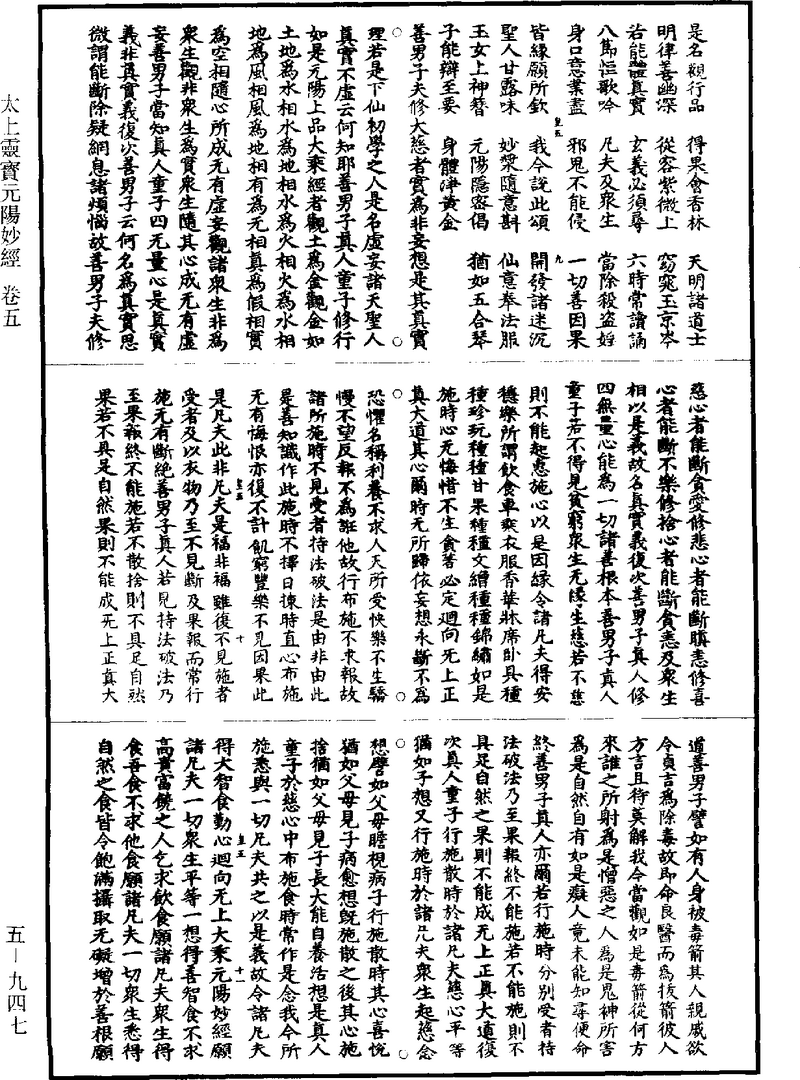 是名觀行品　得果會香林　天明諸道士
明律善幽深　從容紫微上　窈窕玉京岑
若能體真實　玄義必須尋　六時常讀誦
八節恒歌吟　凡夫及眾生　當除殺盜婬
身口意業盡　邪鬼不能侵　一切善因果
皆緣願所欽　我今說此頌　開發諸迷沉
聖人甘露味　妙獎隨意斟　仙意奉法服
玉女上神簪　元陽隱密偈　猶如五合琴
子能辯至要　身體淨黃金
善男子夫修大慈者實為非妄想是其真實
理若是下仙初學之人是名虛妄諸天聖人
真實不虛云何知耶善男子真人童子修行
如是元陽上品大乘經者觀土為金觀金如
土地為水相水為地相水為火相火為水相
地為風相風為地相有為无相真為假相實
為空相隨心所成无有虛妄觀諸眾生非為
眾生觀非眾生為實眾生隨其心成无有虛
妄善男子當知真人童子四无量心是真實
義非真實義復次善男子云何名為真實思
微謂能斷除疑網息諸煩惱故善男子夫修
慈心者能斷貪愛修悲心者能斷瞋恚修喜
心者能斷不樂修捨心者能斷貪恚及眾生
相以是義故名真實義復次善男子真人修
四無量心能為一切諸善根本善男子真人
童子若不得見貧窮眾生无緣生慈若不慈
則不能起惠施心以是因緣令諸凡夫得安
穩樂所謂飲食車乘衣服香華牀席臥具種
種珍玩種種甘果種種文繒種種錦繡如是
施時心无悔惜不生貪苦必定迴向无上正
真大道其心爾時无所歸依妄想永斷不為
恐懼名稱利養不求人天所受快樂不生驕
慢不望反報不為誑他故行布施不求報故
諸所施時不見受者持法破法是由非由此
是善知識作此施時不擇日揀時直心布施
无有悔恨亦復不計飢窮豐樂不見因果此
是凡夫此非凡夫是福非福雖復不見施者
受者及以衣物乃至不見斷及果報而常行
施无有斷絕善男子真人若見持法破法乃
至果報終不能施若不散捨則不具足自然
果若不具足自然果則不能成无上正真大
道善男子譬如有人身被毒箭其人親戚欲
令貞吉為除毒故即命良醫而為拔箭彼人
方言且待莫觸我今當觀如是毒箭從何方
來誰之所射為是憎惡之人為是鬼神所害
為是自然自有如是癡人竟未能知尋便命
終善男子真人亦爾若行施時分別受者持
法破法乃至果報終不能施若不能施則不
具足自然之果則不能成无上正真大道復
次真人童子行施散時於諸凡夫慈心平等
猶如子想又行施時於諸凡夫眾生起慈念
想譬如父母瞻視病子行施散時其心喜悅
猶如父母見子病愈想既施散之後其心施
捨猶如父母見子長大能自養活想是真人
童子於慈心中布施食時常作是念我今所
施悉與一切凡夫共之以是義故令諸凡夫
得大智食勤心迴向无上大乘元陽妙經願
諸凡夫一切眾生平等一想得善智食不求
高貴富饒之人乞求飲食願諸凡夫眾生得
食吾食不求他食願諸凡夫一切眾生悉得
自然之食皆令飽滿攝取无礙增於善根願
太上靈寶元陽妙經　卷五
五－九四七